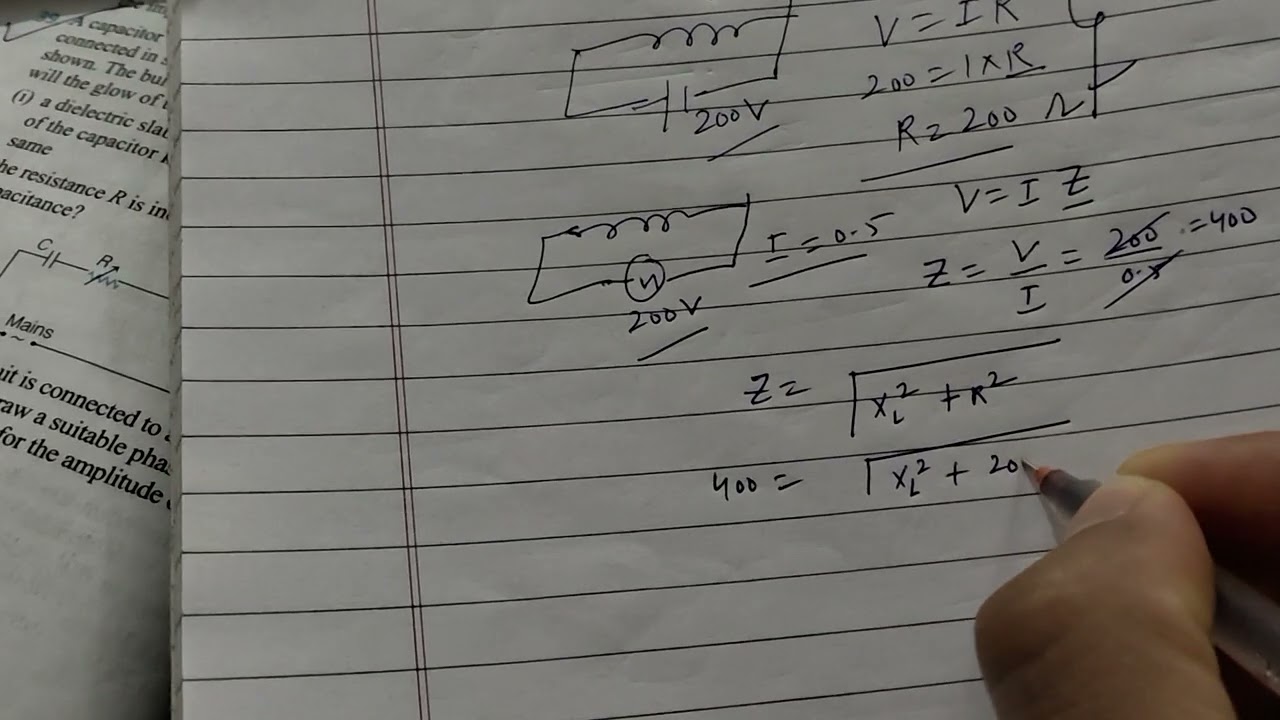 A capacitor
connected in
shown. The bul
will the glow of
(i) a dielectric slab
of the capacitor
same
he resistance R is in
pacitance?
C
R
Mains
~
uit is connected to
raw a suitable pha
for the amplitude
200V
V = I R
200 = 1 × R
R = 200 Ω
200V
I = 0.5
V = I Z
Z = V/I = 200/0.5 = 400
Z = √(X_L² + R²)
400 = √(X_L² + 20